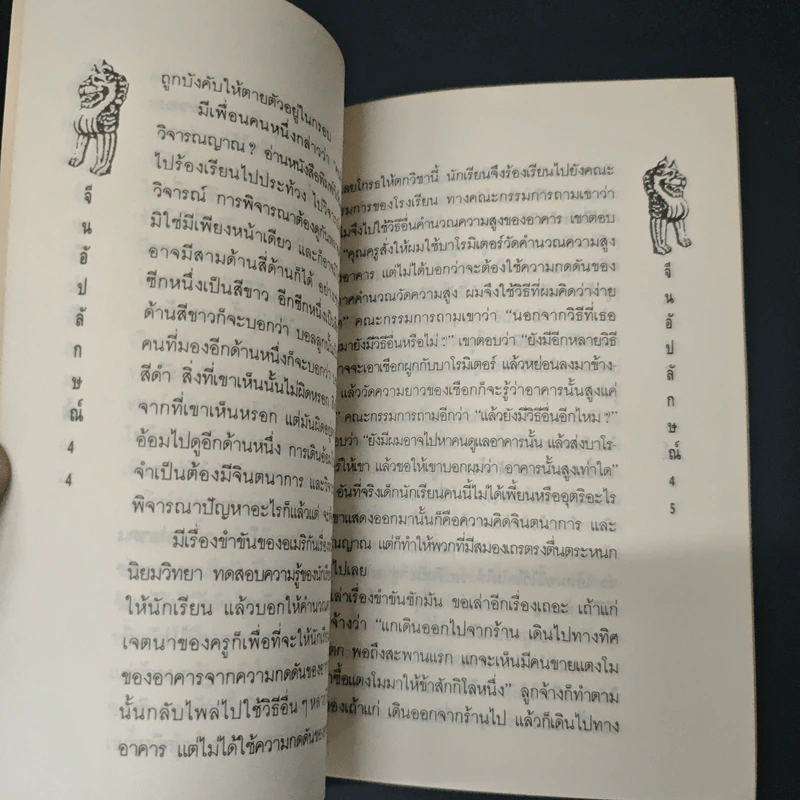 จีนอัปลักษณ์ 44
ถูกบังคับให้ตายตัวอยู่ในกรอบ
มีเพื่อนคนหนึ่งกล่าวว่า
วิจารณญาณ? อ่านหนังสือพิมพ์
ไปร้องเรียนไปประท้วง
วิจารณ์ การพิจารณาต้องดูกัน
มิใช่มีเพียงหน้าเดียว และก็อาจ
อาจมีสามด้านสี่ด้านก็ได้
ซีกหนึ่งเป็นสีขาว อีกซีกหนึ่งเป็น
ด้านสีขาวก็จะบอกว่า บอลลูกนั้น
คนที่มองอีกด้านหนึ่งก็จะบอกว่า
สีดำ สิ่งที่เขาเห็นนั้นไม่ผิดหรอก
จากที่เขาเห็นหรอก แต่มันผิด
อ้อมไปดูอีกด้านหนึ่ง การเดินอ้อม
จำเป็นต้องมีจินตนาการ และ
พิจารณาปัญหาอะไรก็แล้วแต่
มีเรื่องขำขันของอเมริกันเรื่อง
นิยมวิทยา ทดสอบความรู้ของ
ให้นักเรียน แล้วบอกให้คำนวณ
เจตนาของครูก็เพื่อที่จะให้นักเรียน
ของอาคารจากความกดดันของ
นั้นกลับไพล่ไปใช้วิธีอื่นๆ
อาคาร แต่ไม่ได้ใช้ความกดดันของ
เลยโกรธให้ตกวิชานี้ นักเรียนจึงร้องเรียนไปยังคณะ
รมการของโรงเรียน ทางคณะกรรมการถามเขาว่า
ไมจึงไปใช้วิธีอื่นคำนวณความสูงของอาคาร เขาตอบ
"คุณครูสั่งให้ผมใช้บาโรมิเตอร์วัดคำนวณความสูง
อาคาร แต่ไม่ได้บอกว่าจะต้องใช้ความกดดันของ
าศคำนวณวัดความสูง ผมจึงใช้วิธีที่ผมคิดว่าง่าย
" คณะกรรมการถามเขาว่า "นอกจากวิธีที่เธอ
มายังมีวิธีอื่นหรือไม่?" เขาตอบว่า "ยังมีอีกหลายวิธี
าจจะเอาเชือกผูกกับบาโรมิเตอร์ แล้วหย่อนลงมาข้าง-
แล้ววัดความยาวของเชือกก็จะรู้ว่าอาคารนั้นสูงแค่
" คณะกรรมการถามอีกว่า "แล้วยังมีวิธีอื่นอีกไหม?"
อบว่า "ยังมีผมอาจไปหาคนดูแลอาคารนั้น แล้วส่งบาโร-
ร์ให้เขา แล้วขอให้เขาบอกผมว่า อาคารนั้นสูงเท่าใด"
อันที่จริงเด็กนักเรียนคนนี้ไม่ได้เพี้ยนหรืออุตริอะไร
ขาแสดงออกมานั้นก็คือความคิดจินตนาการ และ
ณญาณ แต่ก็ทำให้พวกที่มีสมองเถรตรงตื่นตระหนก
ไปเลย
เล่าเรื่องขำขันซักมัน ขอเล่าอีกเรื่องเถอะ เถ้าแก่
จ้างว่า "แกเดินออกไปจากร้าน เดินไปทางทิศ
ตก พอถึงสะพานแรก แกจะเห็นมีคนขายแตงโม
ซื้อแตงโมมาให้ข้าสักกิโลหนึ่ง" ลูกจ้างก็ทำตาม
องเถ้าแก่ เดินออกจากร้านไป แล้วก็เดินไปทาง
จีนอัปลักษณ์ 45